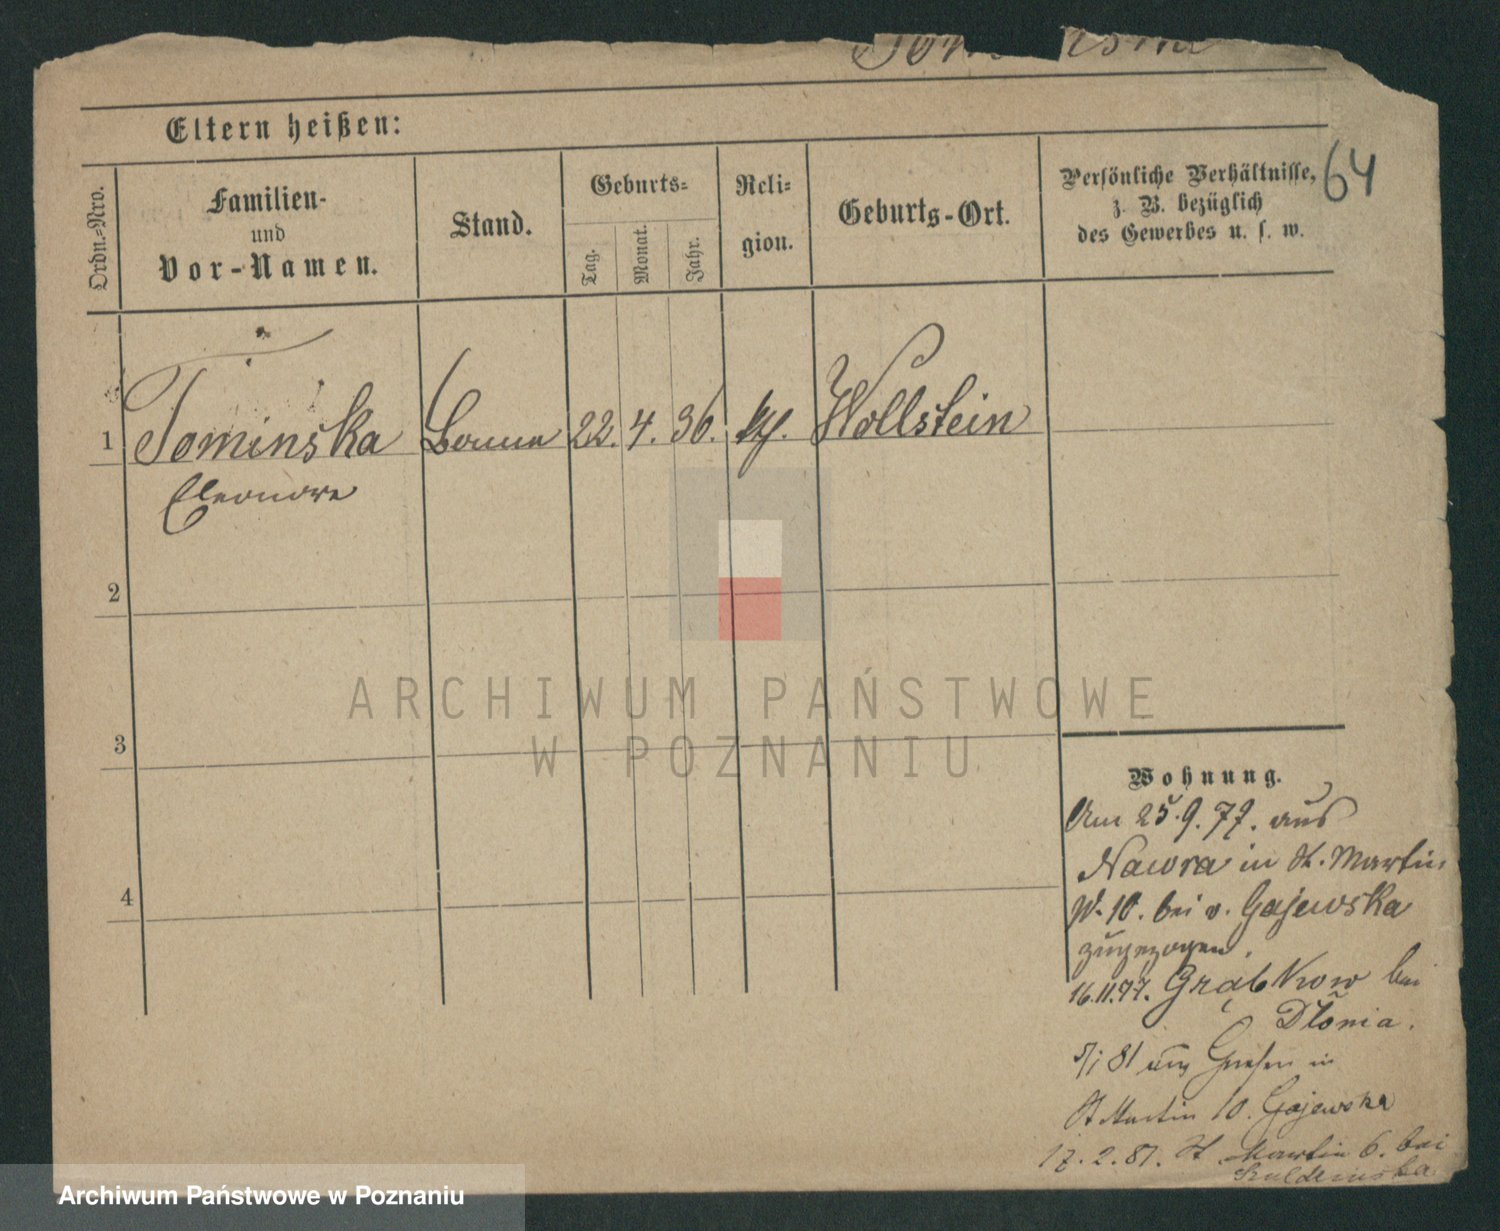 Eltern heißen:
64
Ordn.-Nro.
Familien-
und
Vor-Namen.
Stand.
Geburts-
Tag.
Monat.
Jahr.
Reli-
gion.
Geburts-Ort.
Persönliche Verhältnisse,
z. B. bezüglich
des Gewerbes u. s. w.
1 Tominska Bonne 22. 4. 36. kth. Wollstein
Eleonore
2
3
4
ARCHIWUM PAŃSTWOWE
W POZNANIU
Wohnung.
Am 25.9.77. aus
Nawra in St. Martin
N. 10. bei v. Gajewska
zugezogen.
16.11.77. Grąbkow bei
Dłonia.
5/1 81 aus Gnesen in
St Martin 10. Gajewska
17.2.81. St Martin 6. bei
Archiwum Państwowe w Poznaniu